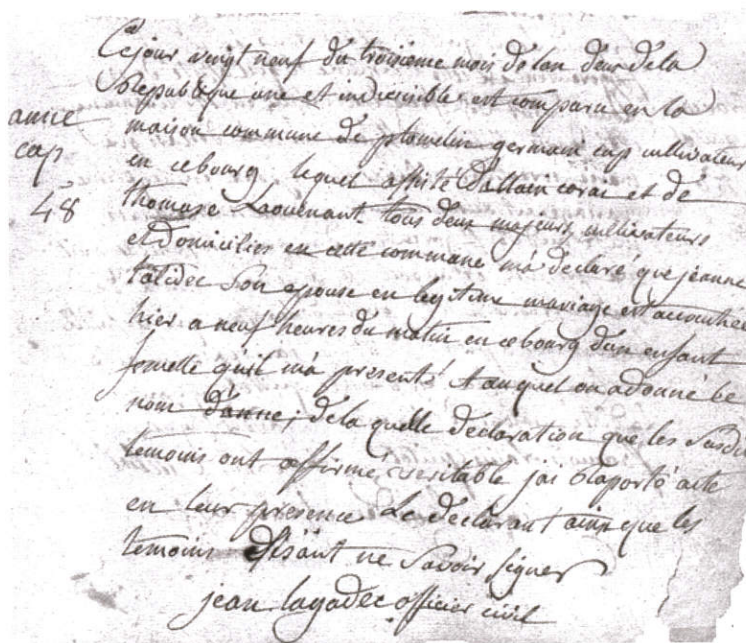 Cejour vingt neuf du troisieme mois de lan deux de la
Republique une et indivisible est comparu en la
maison commune de plomelin germain cap cultivateur
en cebourg lequel assisté dallain corac et de
thomase Laouenant tous deux majeurs cultivateurs
et domiciliés en cette commune m'a declaré que jeanne
talidec son epouse en legitime mariage est accouchée
hier a neuf heures du matin en cebourg dun enfant
femelle qu'il m'a presenté & auquel on a donné le
nom d'anne; de la quelle declaration que les susdits
temoins ont affirmé veritable jai raporté acte
en leur presence Le declarant ainsi que les
temoins disant ne savoir signer
jean lagadec officier civil
anne
cap
48